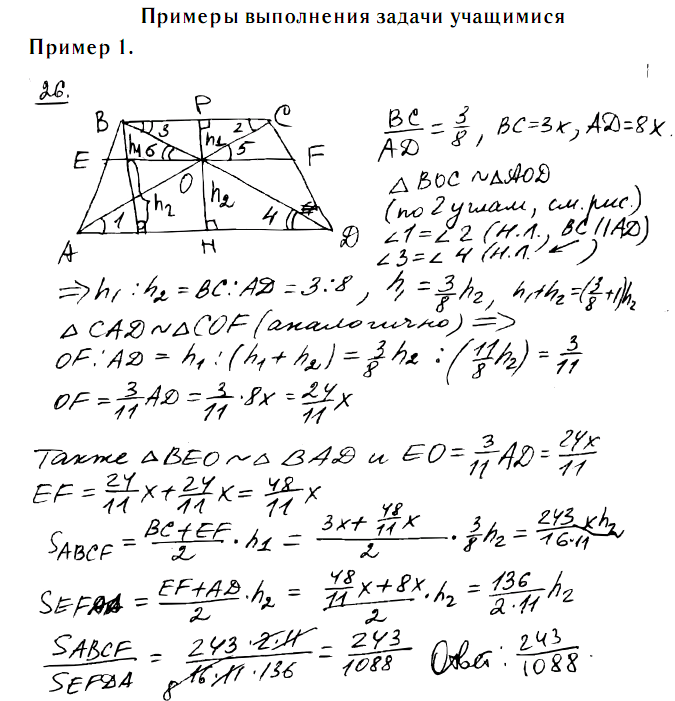 Примеры выполнения задачи учащимися
Пример 1.
26.
B 3 P 2 C
E h₁ 6 h₁ 5 F
O
h₂ h₂
A 1 H 4 D
BC/AD = 3/8, BC=3x, AD=8x.
△BOC ~ △AOD
(по 2 углам, см. рис.)
∠1=∠2 (н.л., BC||AD)
∠3=∠4 (н.л. ↙ )
⇒ h₁ : h₂ = BC : AD = 3:8, h₁ = 3/8 h₂, h₁+h₂ = (3/8+1)h₂
△CAD ~ △COF (аналогично) ⇒
OF : AD = h₁ : (h₁ + h₂) = 3/8 h₂ : (11/8 h₂) = 3/11
OF = 3/11 AD = 3/11 · 8x = 24/11 x
Также △BEO ~ △BAD и EO = 3/11 AD = 24x/11
EF = 24/11 x + 24/11 x = 48/11 x
S_ABCF = (BC+EF)/2 · h₁ = (3x + 48/11 x)/2 · 3/8 h₂ = 243/(16·11) xh₂
S_EFDA = (EF+AD)/2 · h₂ = (48/11 x + 8x)/2 · h₂ = 136/(2·11) h₂
S_ABCF/S_EFDA = (243 · 2·11)/(16·11·136) 8 = 243/1088 Ответ: 243/1088.